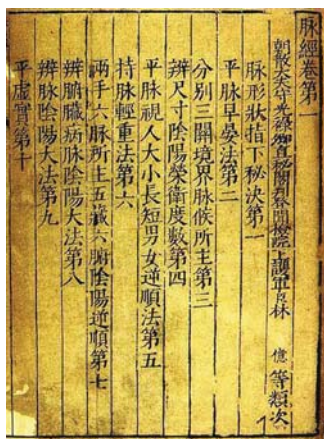 脉經卷第一
朝散大夫守光祿卿直秘閣判登聞檢院上護軍臣林 億 等類次
脉形狀指下秘決第一
平脉早晏法第二
分别三關境界脉候所主第三
辨尺寸陰陽榮衛度數第四
平脉視人大小長短男女逆順法第五
持脉輕重法第六
兩手六脉所主五藏六腑陰陽逆順第七
辨腑臓病脉陰陽大法第八
辨脉陰陽大法第九
平虚實第十